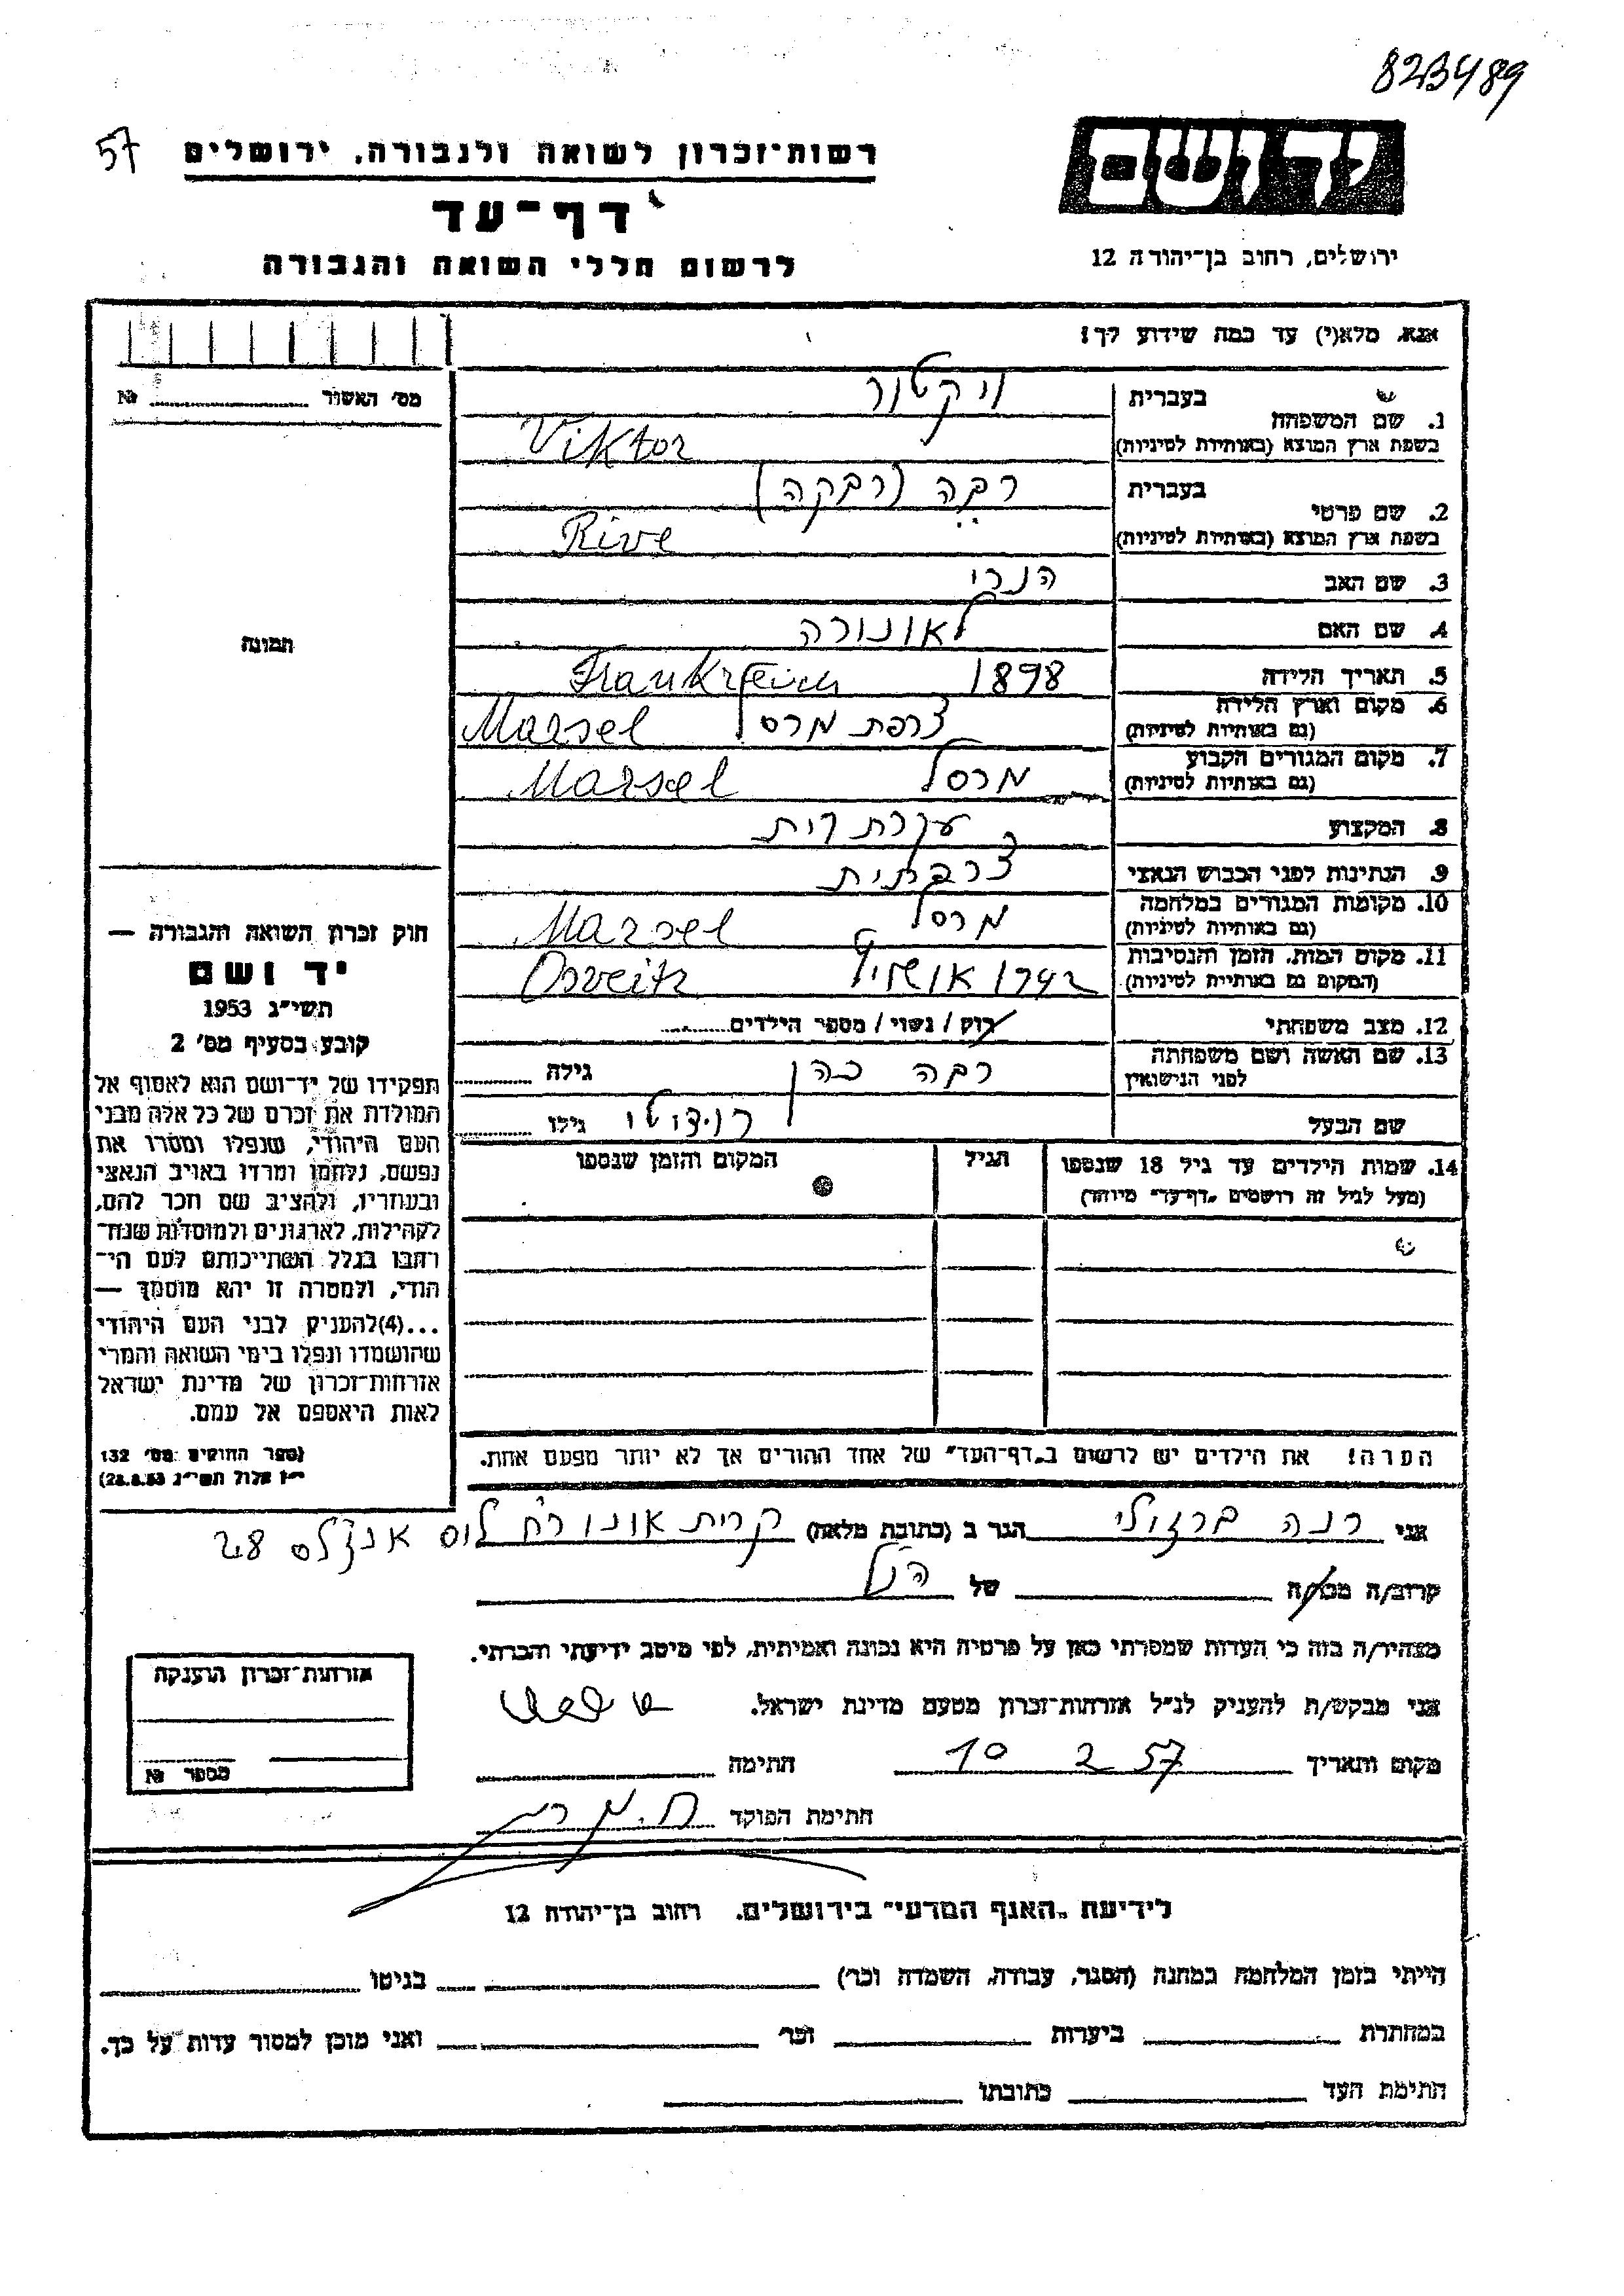 823489
57
רשות־זכרון לשואה ולגבורה, ירושלים
יד ושם
דף־עד
לרשום חללי השואה והגבורה
ירושלים, רחוב בן־יהודה 12
אנא, מלא(י) עד כמה שידוע לך!
מס' האשור № 
1. שם המשפחה
בעברית ויקטור
בשפת ארץ המוצא (באותיות לטיניות) Viktor
2. שם פרטי
בעברית רבה (רבקה)
בשפת ארץ המוצא (באותיות לטיניות) Rive
3. שם האב הנרי
4. שם האם לאונורה
תמונה
5. תאריך הלידה 1898 Frankreich
6. מקום וארץ הלידה
(גם באותיות לטיניות) צרפת מרסל Marsel
7. מקום המגורים הקבוע
(גם באותיות לטיניות) מרסל Marsel
8. המקצוע עקרת בית
9. הנתינות לפני הכבוש הנאצי צרפתית
10. מקומות המגורים במלחמה
(גם באותיות לטיניות) מרסל Marsel
11. מקום המות, הזמן והנסיבות
(המקום גם באותיות לטיניות) אושויץ Osveitz
12. מצב משפחתי רוק / נשוי / מספר הילדים
13. שם האשה ושם משפחתה
לפני הנישואין רבה כהן גילה
שם הבעל גילו
14. שמות הילדים עד גיל 18 שנספו
(מעל לגיל זה רושמים „דף־עד" מיוחד)
הגיל
המקום והזמן שנספו
חוק זכרון השואה והגבורה —
יד ושם
תשי"ג 1953
קובע בסעיף מס' 2
תפקידו של יד־ושם הוא לאסוף אל
המולדת את זכרם של כל אלה מבני
העם היהודי, שנפלו ומסרו את
נפשם, נלחמו ומרדו באויב הנאצי
ובעוזריו, ולהציב שם וזכר להם,
לקהילות, לארגונים ולמוסדות שנח־
רבו בגלל השתייכותם לעם הי־
הודי, ולמטרה זו יהא מוסמך —
...(4)להעניק לבני העם היהודי
שהושמדו ונפלו בימי השואה והמרי
אזרחות־זכרון של מדינת ישראל
לאות היאספם אל עמם.
(ספר החוקים מס' 132
י"ז אלול תשי"ג 28.8.53)
הערה! את הילדים יש לרשום ב„דף־העד" של אחד ההורים אך לא יותר מפעם אחת.
אני רנה ברזילי הגר ב (כתובת מלאה) קרית אונו רח' לוס אנג'לס 28
קרוב/ה מכר/ה של הנ"ל
מצהיר/ה בזה כי העדות שמסרתי כאן על פרטיה היא נכונה ואמיתית, לפי מיטב ידיעתי והכרתי.
אני מבקש/ת להעניק לנ"ל אזרחות־זכרון מטעם מדינת ישראל.
מקום ותאריך 10 2 57 חתימה
חתימת הפוקד
אזרחות־זכרון הוענקה
מספר №
לידיעת „האגף המדעי" בירושלים. רחוב בן־יהודה 12
הייתי בזמן המלחמה במחנה (הסגר, עבודה, השמדה וכו') בגיטו
במחתרת ביערות וכו' ואני מוכן למסור עדות על כך.
חתימת העד כתובתו